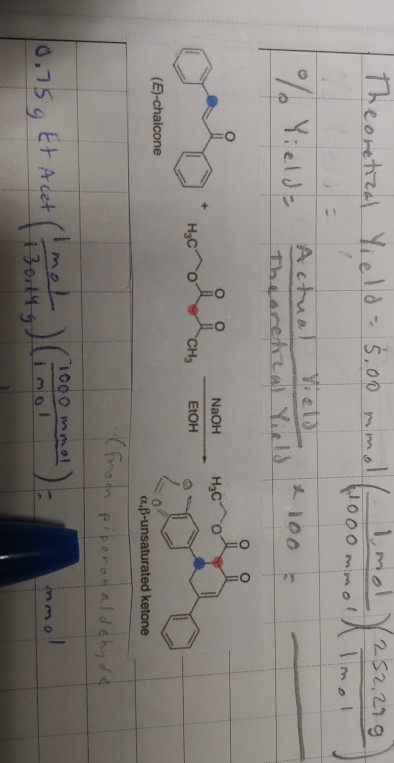 Theoretical Yield = 5.00 mmol (1 mol / 1000 mmol)(252.29g / 1 mol)
% Yield = Actual Yield / Theoretical Yield × 100 =
(E)-chalcone
+
H₃C
O
O
O
CH₃
NaOH
EtOH
H₃C
O
O
O
α,β-unsaturated ketone
(from piperonaldehyde
0.75g Et Acet (1 mol / 130.14g)(1000 mmol / 1 mol) = mmol